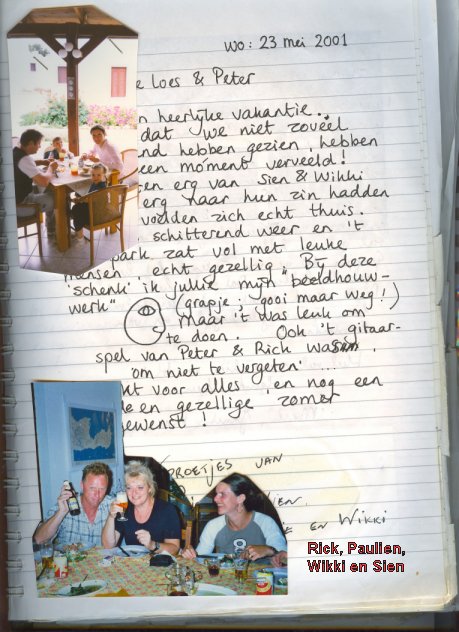 wo: 23 mei 2001
Loes & Peter
heerlijke vakantie..
dat we niet zovéél
hebben gezien, hebben
móment verveeld!
erg van Sien & Wikki
erg naar hun zin hadden
voelden zich echt thuis.
schitterend weer en 't
park zat vol met leuke
mensen, echt gezellig. Bij deze
'schenk' ik jullie mijn "beeldhouw-
werk" (grapje, gooi maar weg!)
Maar 't was leuk om
te doen. Ook 't gitaar-
spel van Peter & Rick was
om niet te vergeten ...
voor alles en nog een
en gezellige zomer
gewenst!
VAN
en Wikki
8
Rick, Paulien,
Wikki en Sien